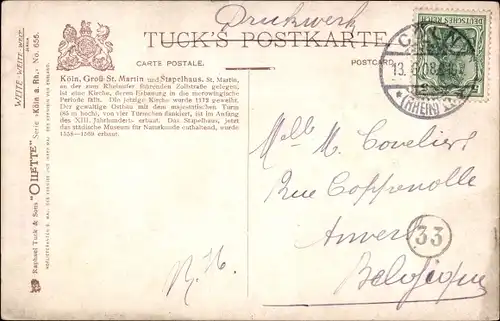 Druckwerk
TUCK'S POSTKARTE
CARTE POSTALE.
POSTCARD
DEUTSCHES REICH
CÖLN
13.
08.
*(RHEIN)
Köln, Groß-St. Martin und Stapelhaus. St. Martin,
an der zum Rheinufer führenden Zollstraße gelegen,
ist eine Kirche, deren Erbauung in die merowingische
Periode fällt. Die jetzige Kirche wurde 1172 geweiht.
Der gewaltige Ostbau mit dem majestätischen Turm
(85 m hoch), von vier Türmchen flankiert, ist im Anfang
des XIII. Jahrhunderts erbaut. Das Stapelhaus, jetzt
das städische Museum für Naturkunde enthaltend, wurde
1558—1569 erbaut.
Melle M. Cuvelier
Rue Coppenolle
Anvers
33
Belgique
Raphael Tuck & Sons' "OILETTE" Serie „Köln a. Rh." No. 656.